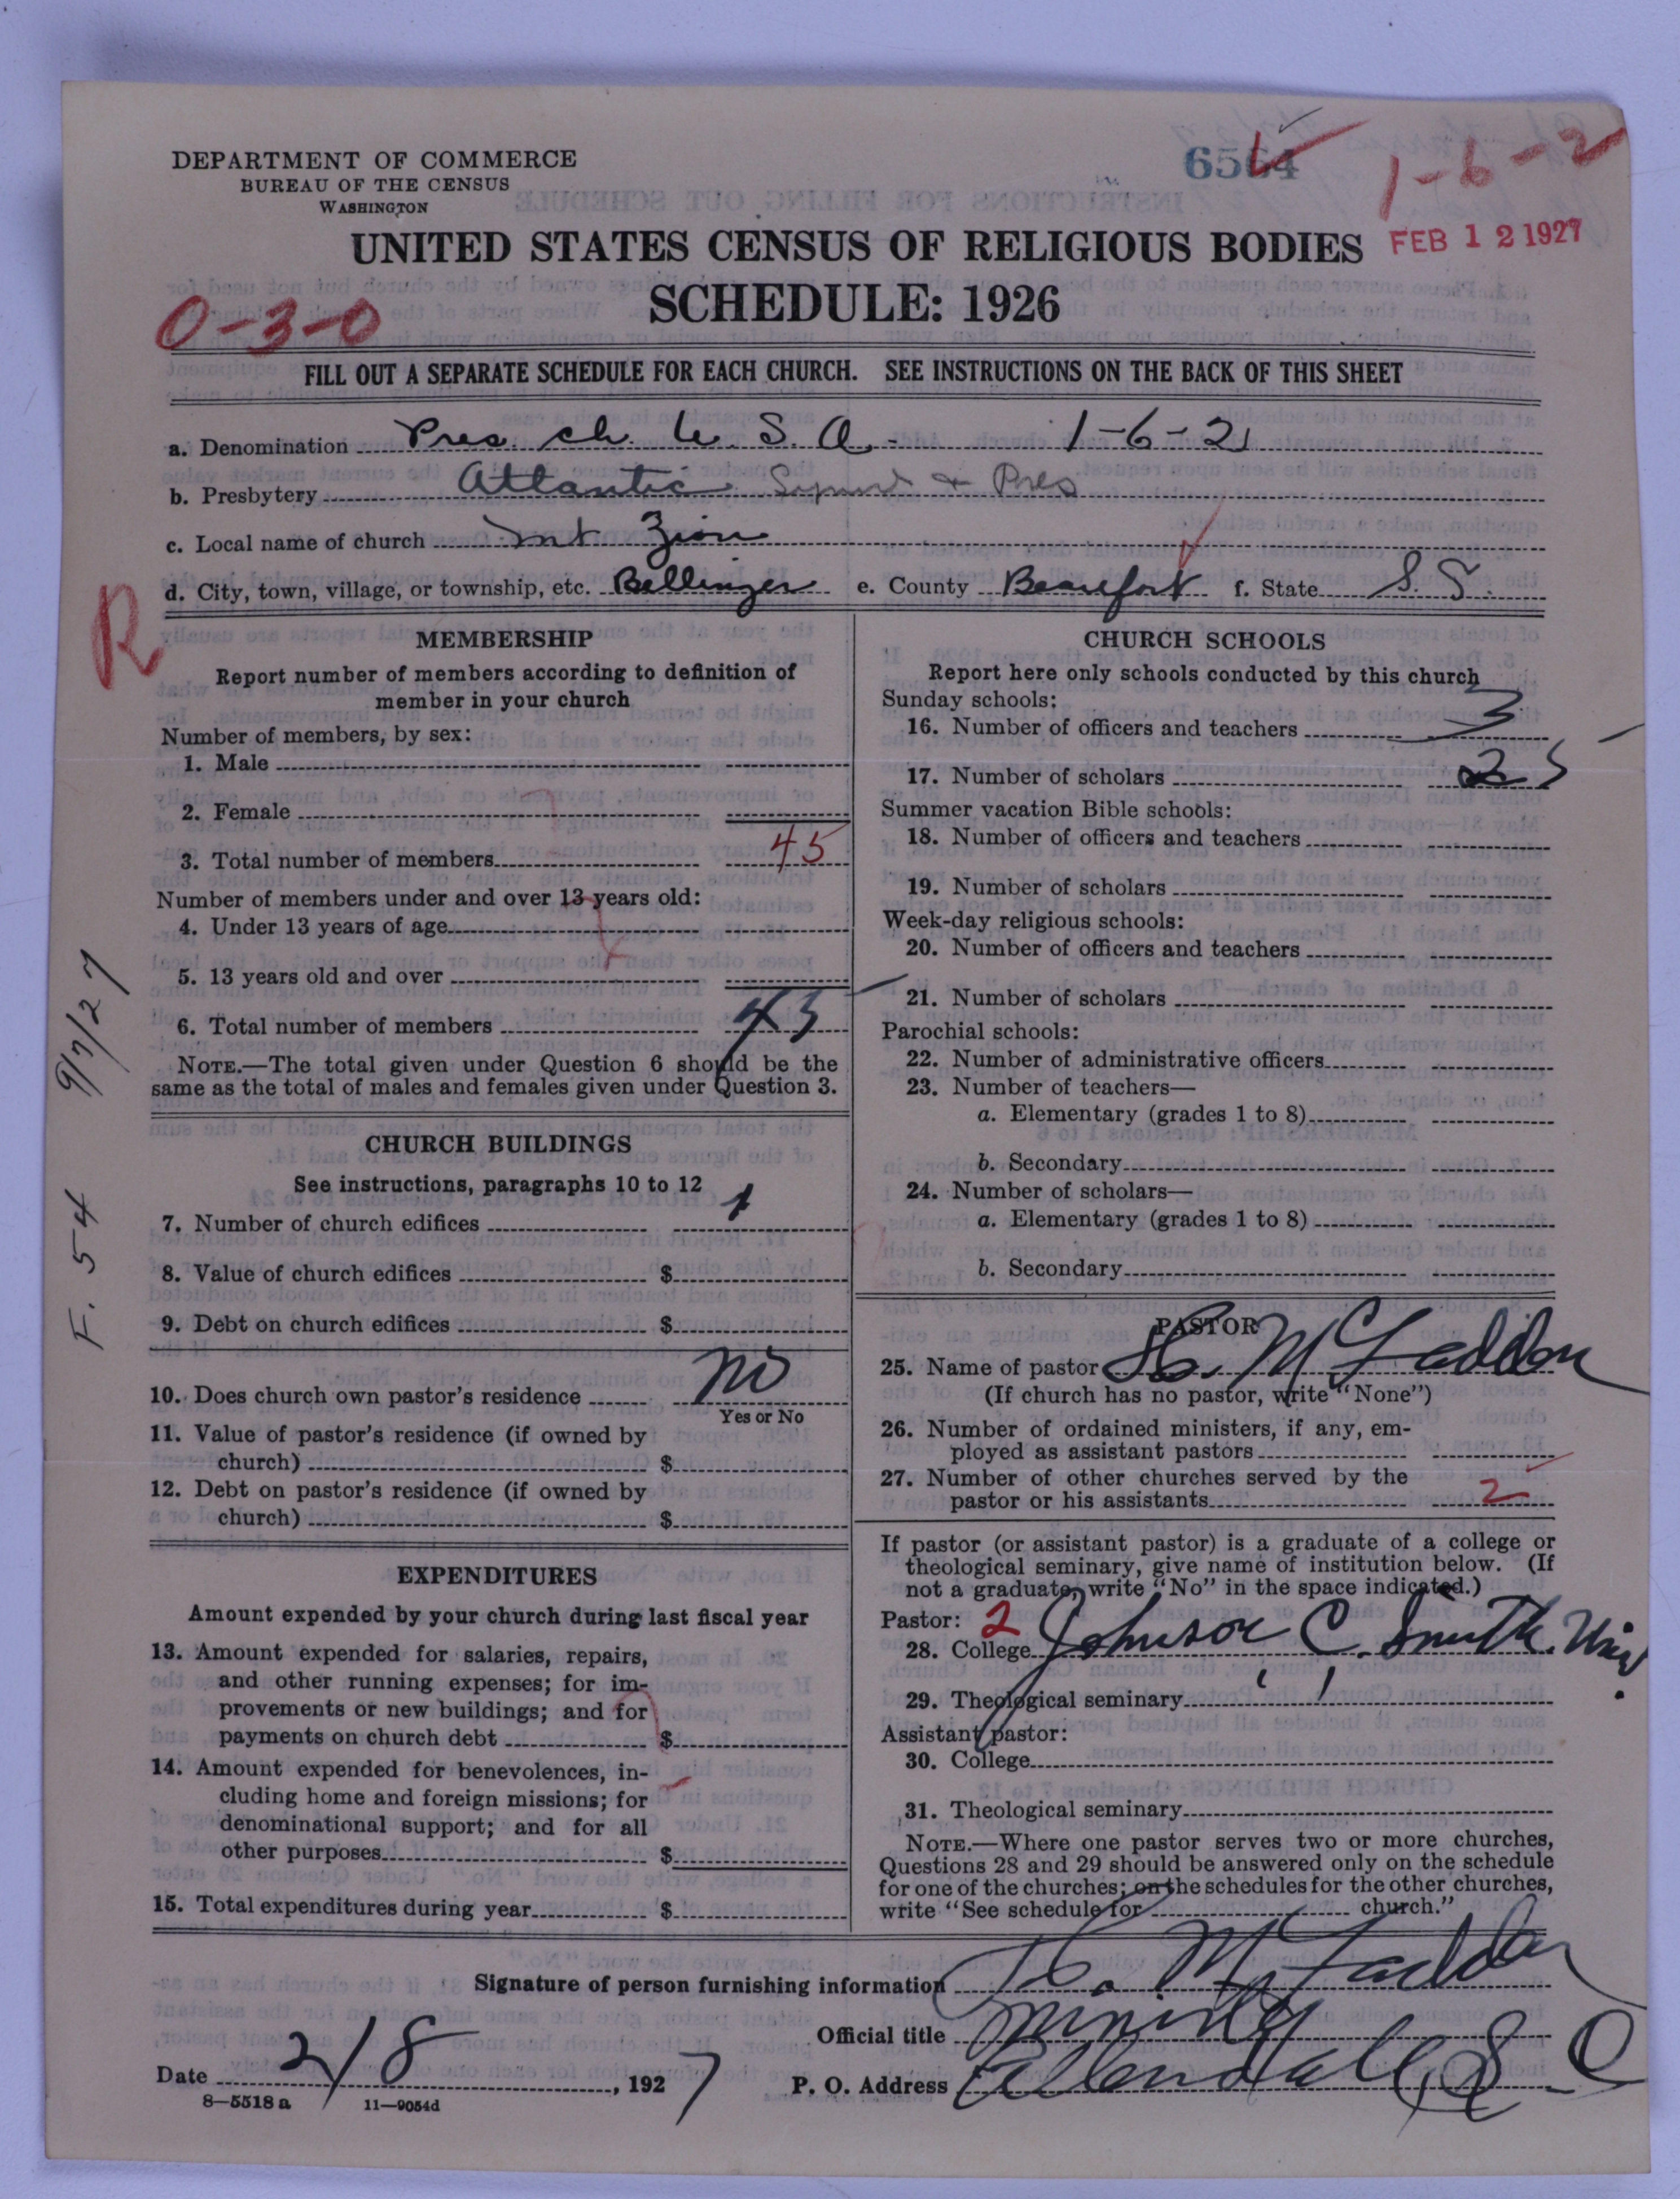 DEPARTMENT OF COMMERCE
BUREAU OF THE CENSUS
WASHINGTON
1-6-2
FEB 12 1927
UNITED STATES CENSUS OF RELIGIOUS BODIES
SCHEDULE: 1926
0-3-0
FILL OUT A SEPARATE SCHEDULE FOR EACH CHURCH. SEE INSTRUCTIONS ON THE BACK OF THIS SHEET
a. Denomination Pres. ch. U. S. A. 1-6-21
b. Presbytery Atlantic & Pres
c. Local name of church Mt Zion
d. City, town, village, or township, etc. Bellinger e. County Beaufort f. State S. C.
R
MEMBERSHIP
Report number of members according to definition of
member in your church
Number of members, by sex:
1. Male
2. Female
3. Total number of members 45
Number of members under and over 13 years old:
4. Under 13 years of age
5. 13 years old and over
6. Total number of members 45
NOTE.—The total given under Question 6 should be the
same as the total of males and females given under Question 3.
9/7/27
F. 54
CHURCH BUILDINGS
See instructions, paragraphs 10 to 12
7. Number of church edifices 1
8. Value of church edifices $
9. Debt on church edifices $
10. Does church own pastor's residence no
Yes or No
11. Value of pastor's residence (if owned by
church) $
12. Debt on pastor's residence (if owned by
church) $
EXPENDITURES
Amount expended by your church during last fiscal year
13. Amount expended for salaries, repairs,
and other running expenses; for im-
provements or new buildings; and for
payments on church debt $
14. Amount expended for benevolences, in-
cluding home and foreign missions; for
denominational support; and for all
other purposes $
15. Total expenditures during year $
CHURCH SCHOOLS
Report here only schools conducted by this church
Sunday schools:
16. Number of officers and teachers 3
17. Number of scholars 25
Summer vacation Bible schools:
18. Number of officers and teachers
19. Number of scholars
Week-day religious schools:
20. Number of officers and teachers
21. Number of scholars
Parochial schools:
22. Number of administrative officers
23. Number of teachers—
a. Elementary (grades 1 to 8)
b. Secondary
24. Number of scholars—
a. Elementary (grades 1 to 8)
b. Secondary
PASTOR
25. Name of pastor H. McFadden
(If church has no pastor, write "None")
26. Number of ordained ministers, if any, em-
ployed as assistant pastors
27. Number of other churches served by the
pastor or his assistants 2
If pastor (or assistant pastor) is a graduate of a college or
theological seminary, give name of institution below. (If
not a graduate, write "No" in the space indicated.)
Pastor: 2
28. College Johnson C. Smith Univ.
29. Theological seminary " "
Assistant pastor:
30. College
31. Theological seminary
NOTE.—Where one pastor serves two or more churches,
Questions 28 and 29 should be answered only on the schedule
for one of the churches; on the schedules for the other churches,
write "See schedule for church."
Signature of person furnishing information H. McFadden
Official title Minister
Date 2/8, 1927 P. O. Address Allendale, S. C
8—5518 a 11—9054d